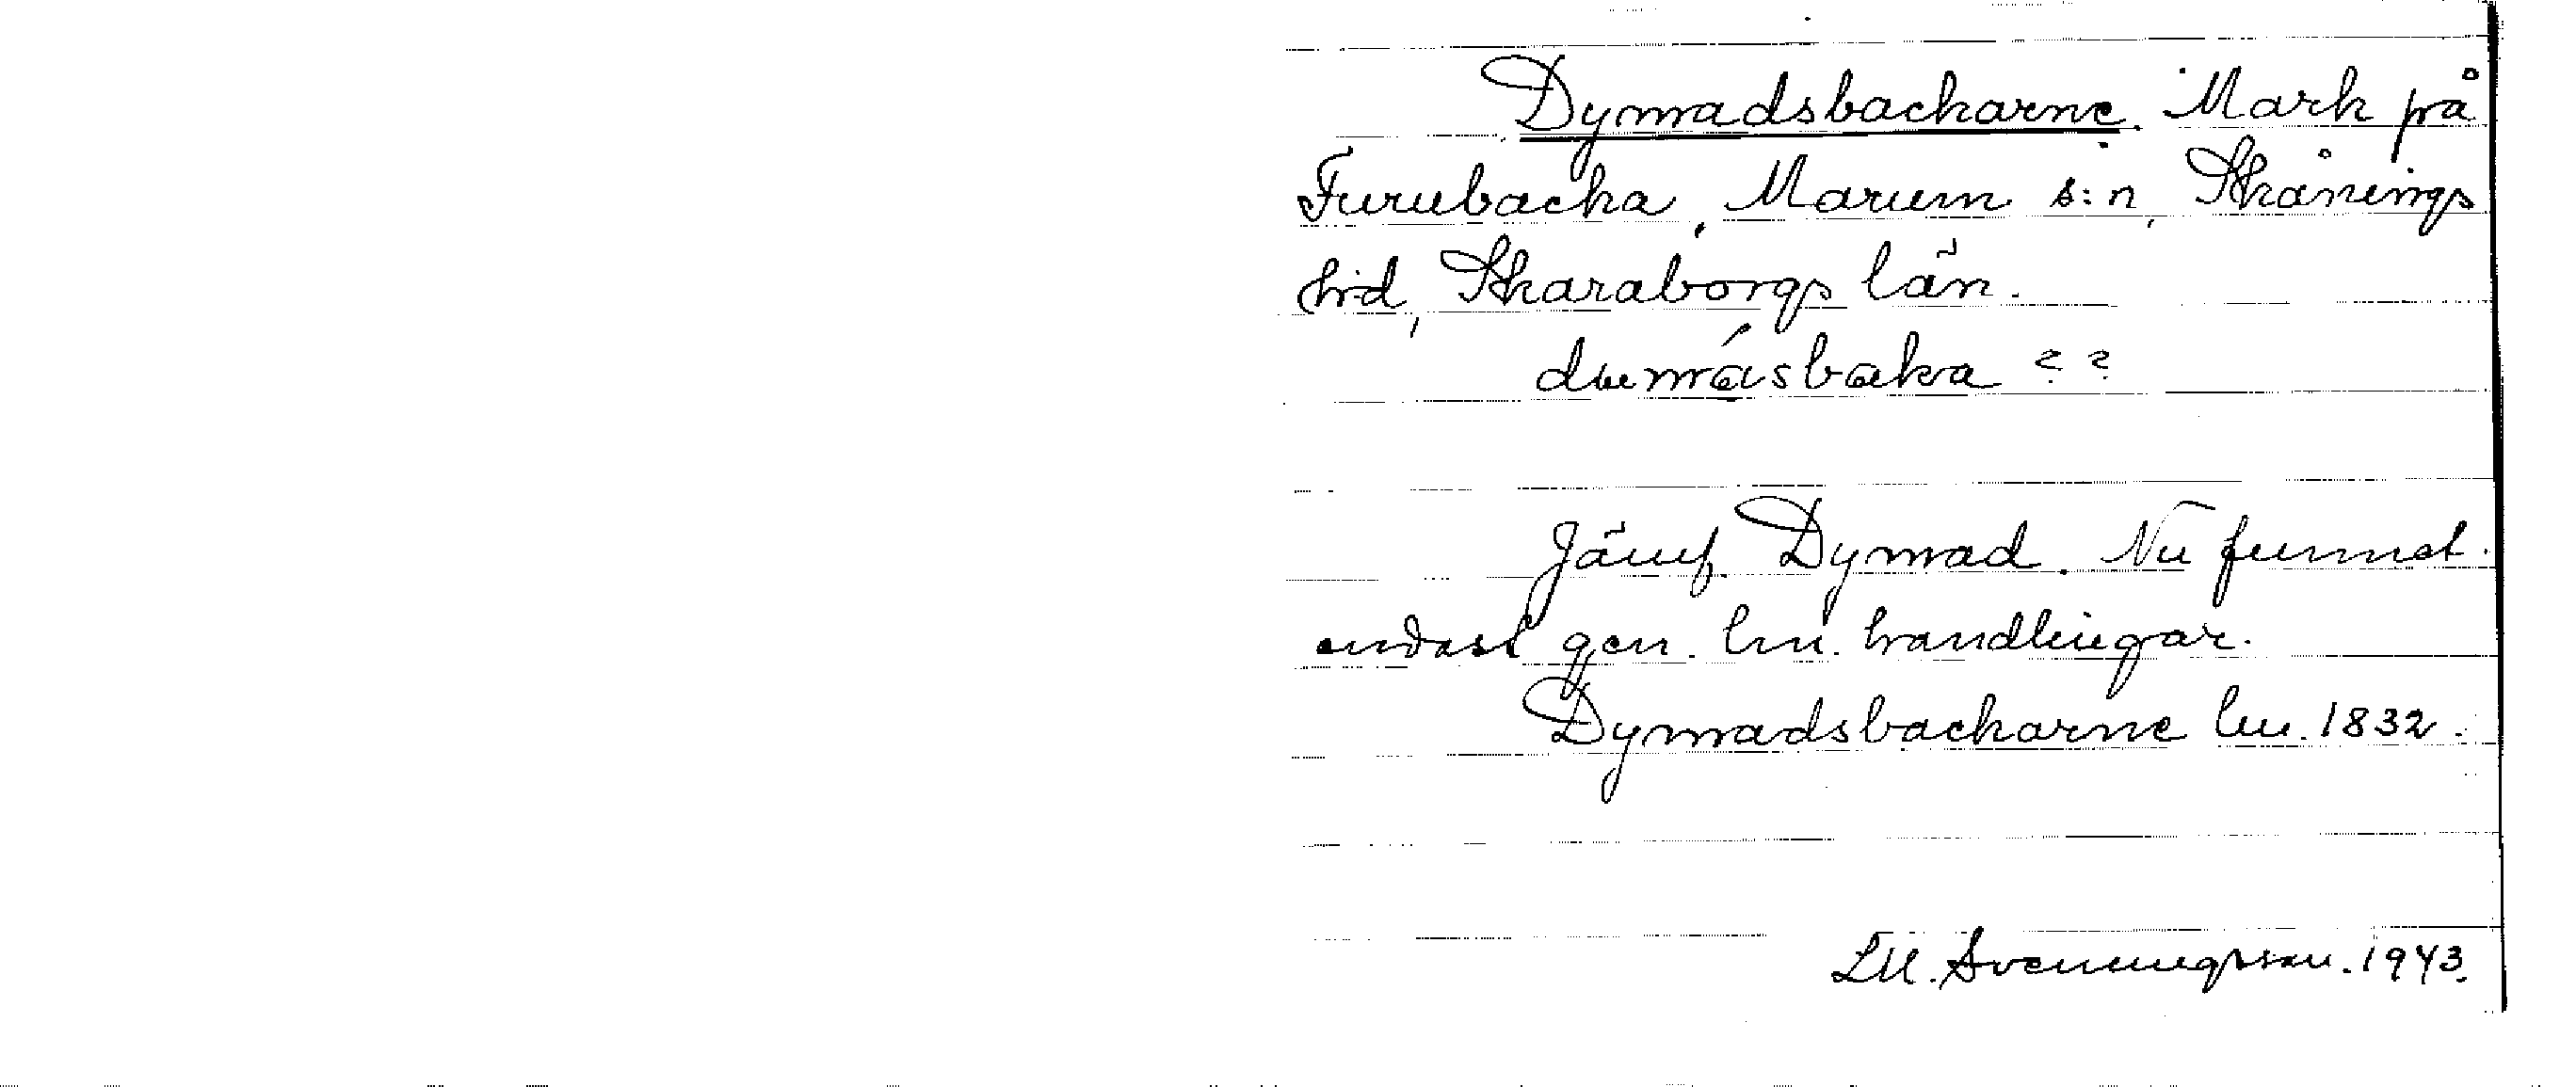 Dymadsbackarne. Mark på
Furubacka, Marum s:n, Skånings
hd, Skaraborgs län.
Jämf. Dymad. Nu funnet
endast gen. lm. handlingar.
Dymadsbackarne lm. 1832.
LM. Svenungsson. 1943.